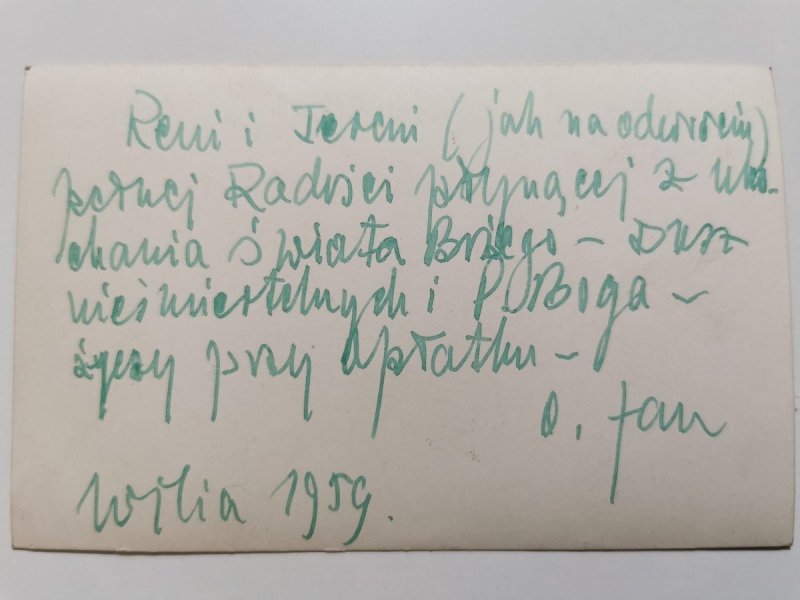 Reni i Tereni (jak na odwrocie)
pełnej Radości płynącej z uko-
chania świata Bożego – Dusz
nieśmiertelnych i P. Boga –
życzy przy opłatku –
O. Jan
Wilia 1959.